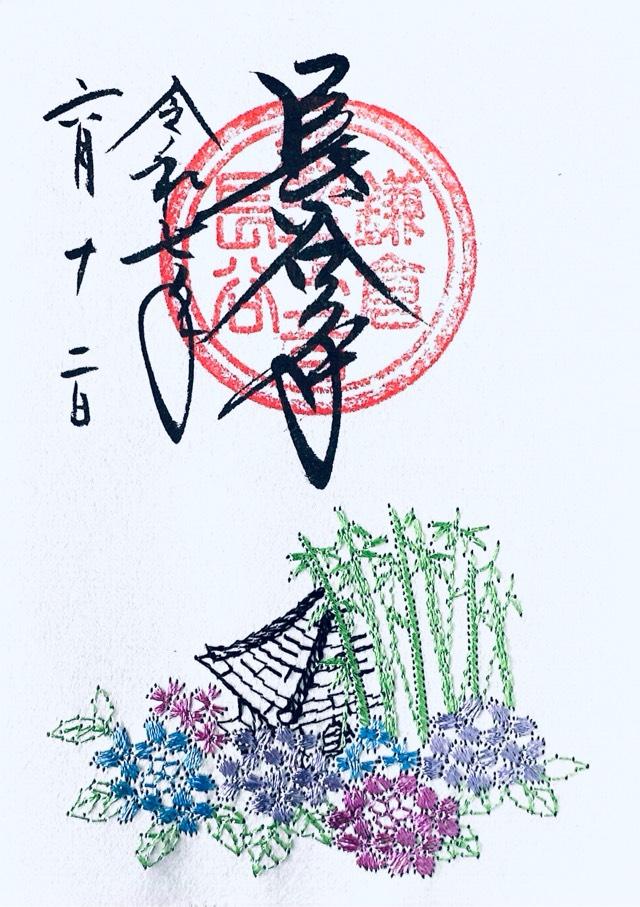 長谷寺
令和七年
六月十二日
鎌倉
長谷